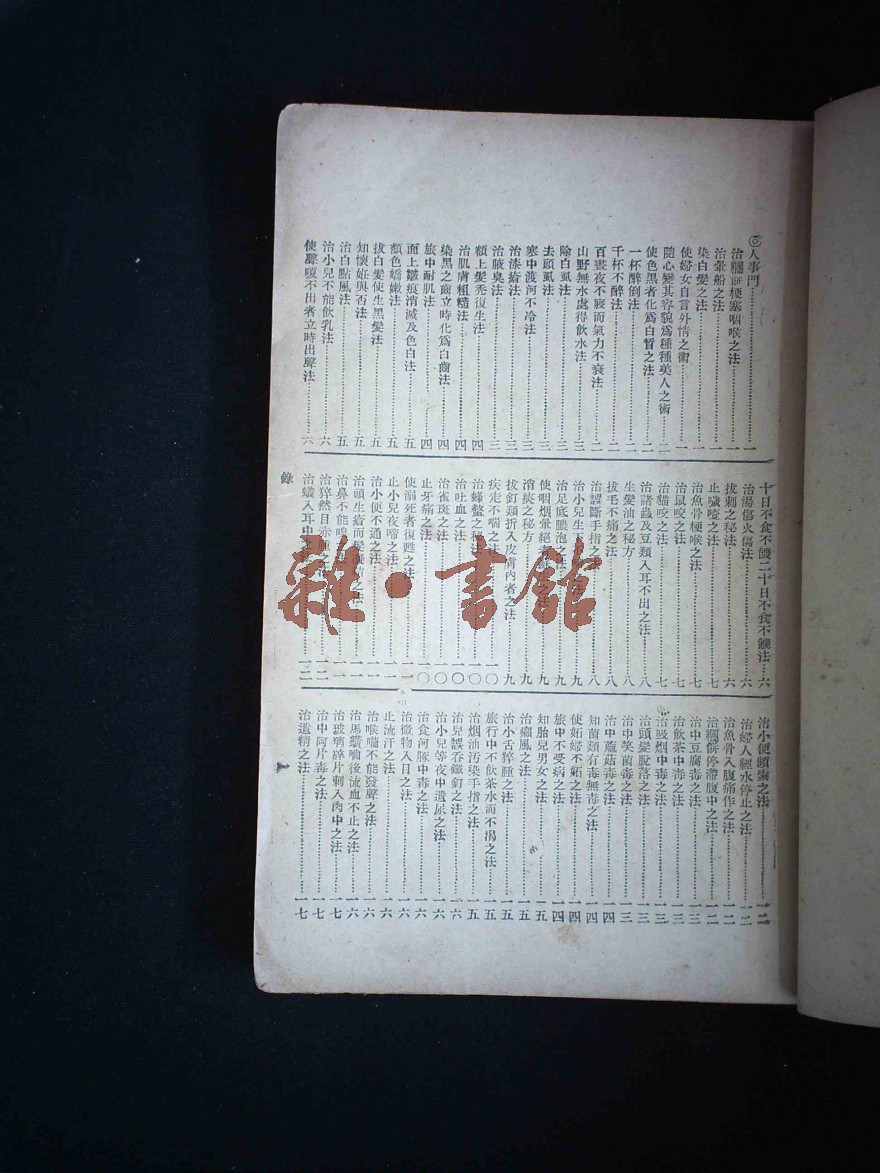 人事門……一
治糰餅梗塞咽喉之法……一
治暈船之法……一
染白髮之法……一
使婦女自言外情之術……一
隨心變其容貌爲種種美人之術……二
使色黑者化爲白皙之法……二
一杯醉倒法……二
千杯不醉法……二
百晝夜不寢而氣力不衰法……二
山野無水處得飲水法……三
除白虱法……三
去頭虱法……三
寒中渡河不冷法……三
治漆瘡法……三
治腋臭法……三
額上髮禿復生法……四
治肌膚粗糙法……四
染黑之齒立時化爲白齒法……四
旅中耐肌法……四
面上皺痕消滅及色白法……五
顏色嬌嫩法……五
拔白髮使生黑髮法……五
知懷妊與否法……五
治白點風法……五
治小兒不能飲乳法……六
使聲嗄不出者立時出聲法……六
十日不食不饑二十日不食不饑法……六
治湯傷火傷法……六
拔刺之秘法……六
止噦噎之法……七
治魚骨梗喉之法……七
治鼠咬之法……七
治貓咬之法……七
治諸蟲及豆類入耳不出之法……八
生髮油之秘方……八
拔毛不痛之法……八
治誤斷手指之法……八
治小兒生
治足底膿泡之法……九
使咽烟暈絕者
消痰之秘方……九
拔釘類折入皮膚內者之法……九
疾走不喘之法……一〇
治蜂螫之法……一〇
治吐血之法……一〇
治雀斑之法……一〇
止牙痛之法……一〇
使溺死者復甦之法……一一
止小兒夜啼之法……一一
治小便不通之法……一一
治頭生瘡而髮
治鼻不能嗅
治猝然目赤腫之法……一二
治蟻入耳中之法……一二
錄
治小便頻數之法……一二
治婦人經水停止之法……一二
治魚骨入腹痛作之法……一二
治糰餅停滯腹中之法……一二
治中豆腐毒之法……一三
治飲茶中毒之法……一三
治吸烟中毒之法……一三
治頭髮脫落之法……一三
治中笑菌毒之法……一三
治中蕈菇毒之法……一四
知菌類有毒無毒之法……一四
使妬婦不妬之法……一四
旅中不受病之法……一四
知胎兒男女之法……一五
治癲風之法……一五
治小舌猝腫之法……一五
旅行中不飲茶水而不渴之法……一五
治烟油汚染手指之法……一五
治兒誤吞鐵釘之法……一六
治小兒等夜中遺尿之法……一六
治食河豚中毒之法……一六
治微物入目之法……一六
止流汗之法……一六
治喉嘶不能發聲之法……一六
治馬蟥嚙後流血不止之法……一六
治玻璃碎片刺入肉中之法……一七
治中阿片毒之法……一七
治遺精之法……一七
雜·書館